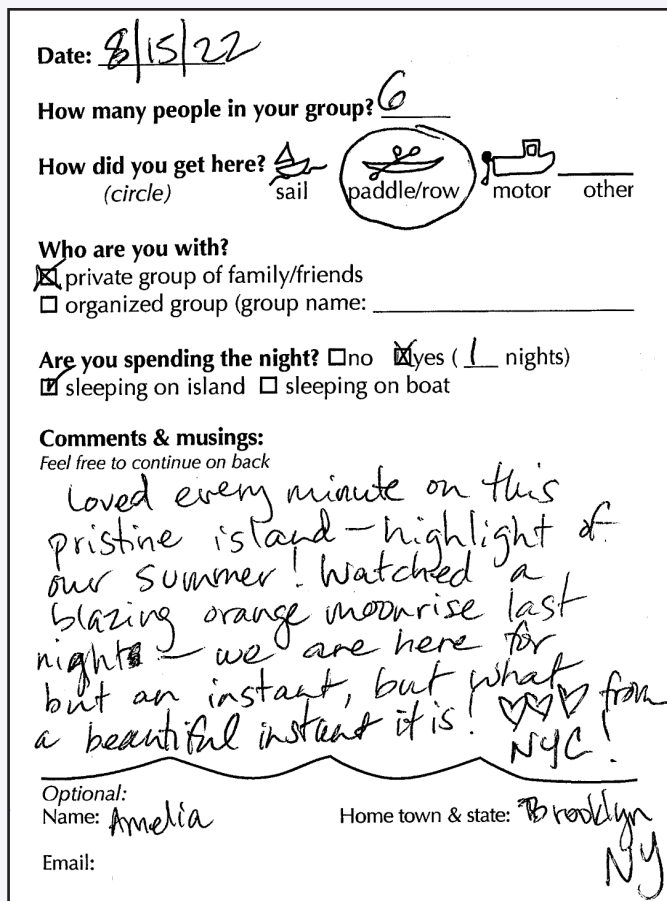 Date: 8/15/22
How many people in your group? 6
How did you get here?
(circle) sail paddle/row motor other
Who are you with?
☒ private group of family/friends
☐ organized group (group name:
Are you spending the night? ☐ no ☒ yes ( 1 nights)
☑ sleeping on island ☐ sleeping on boat
Comments & musings:
Feel free to continue on back
Loved every minute on this
pristine island – highlight of
our summer! Watched a
blazing orange moonrise last
night – we are here for
but an instant, but what
a beautiful instant it is! ♡♡♡ from
NYC!
Optional:
Name: Amelia Home town & state: Brooklyn
NY
Email: